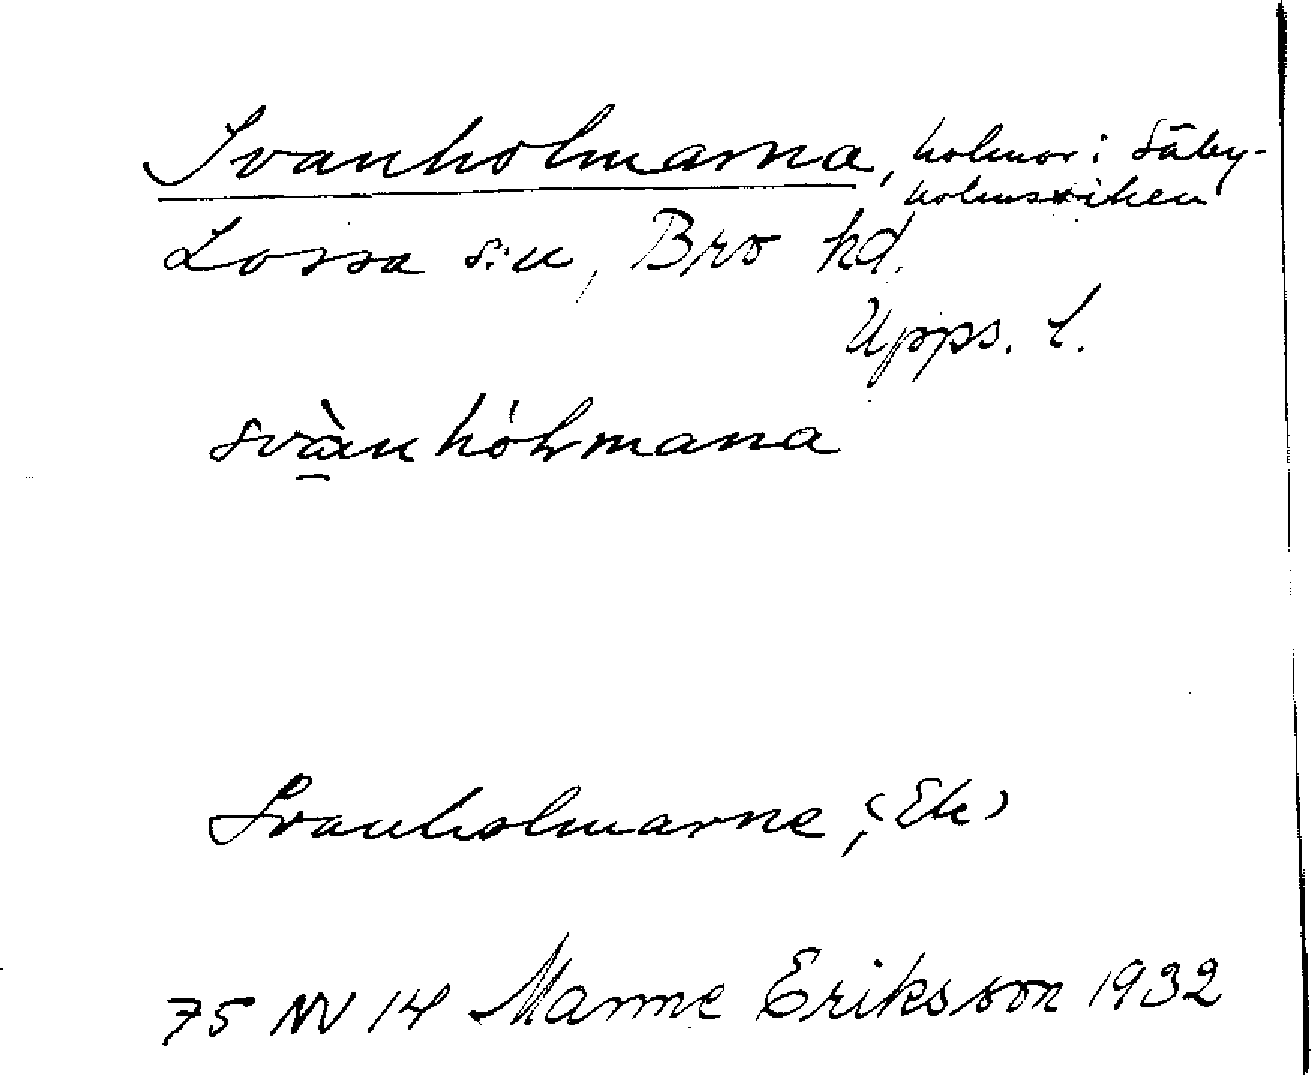 Svanholmarna, holmar i Säby-
holmsviken
Lossa s:n, Bro hd.
Upps. l.
svànhólmana
Svanholmarne, (Ek)
75 NV 14 Manne Eriksson 1932